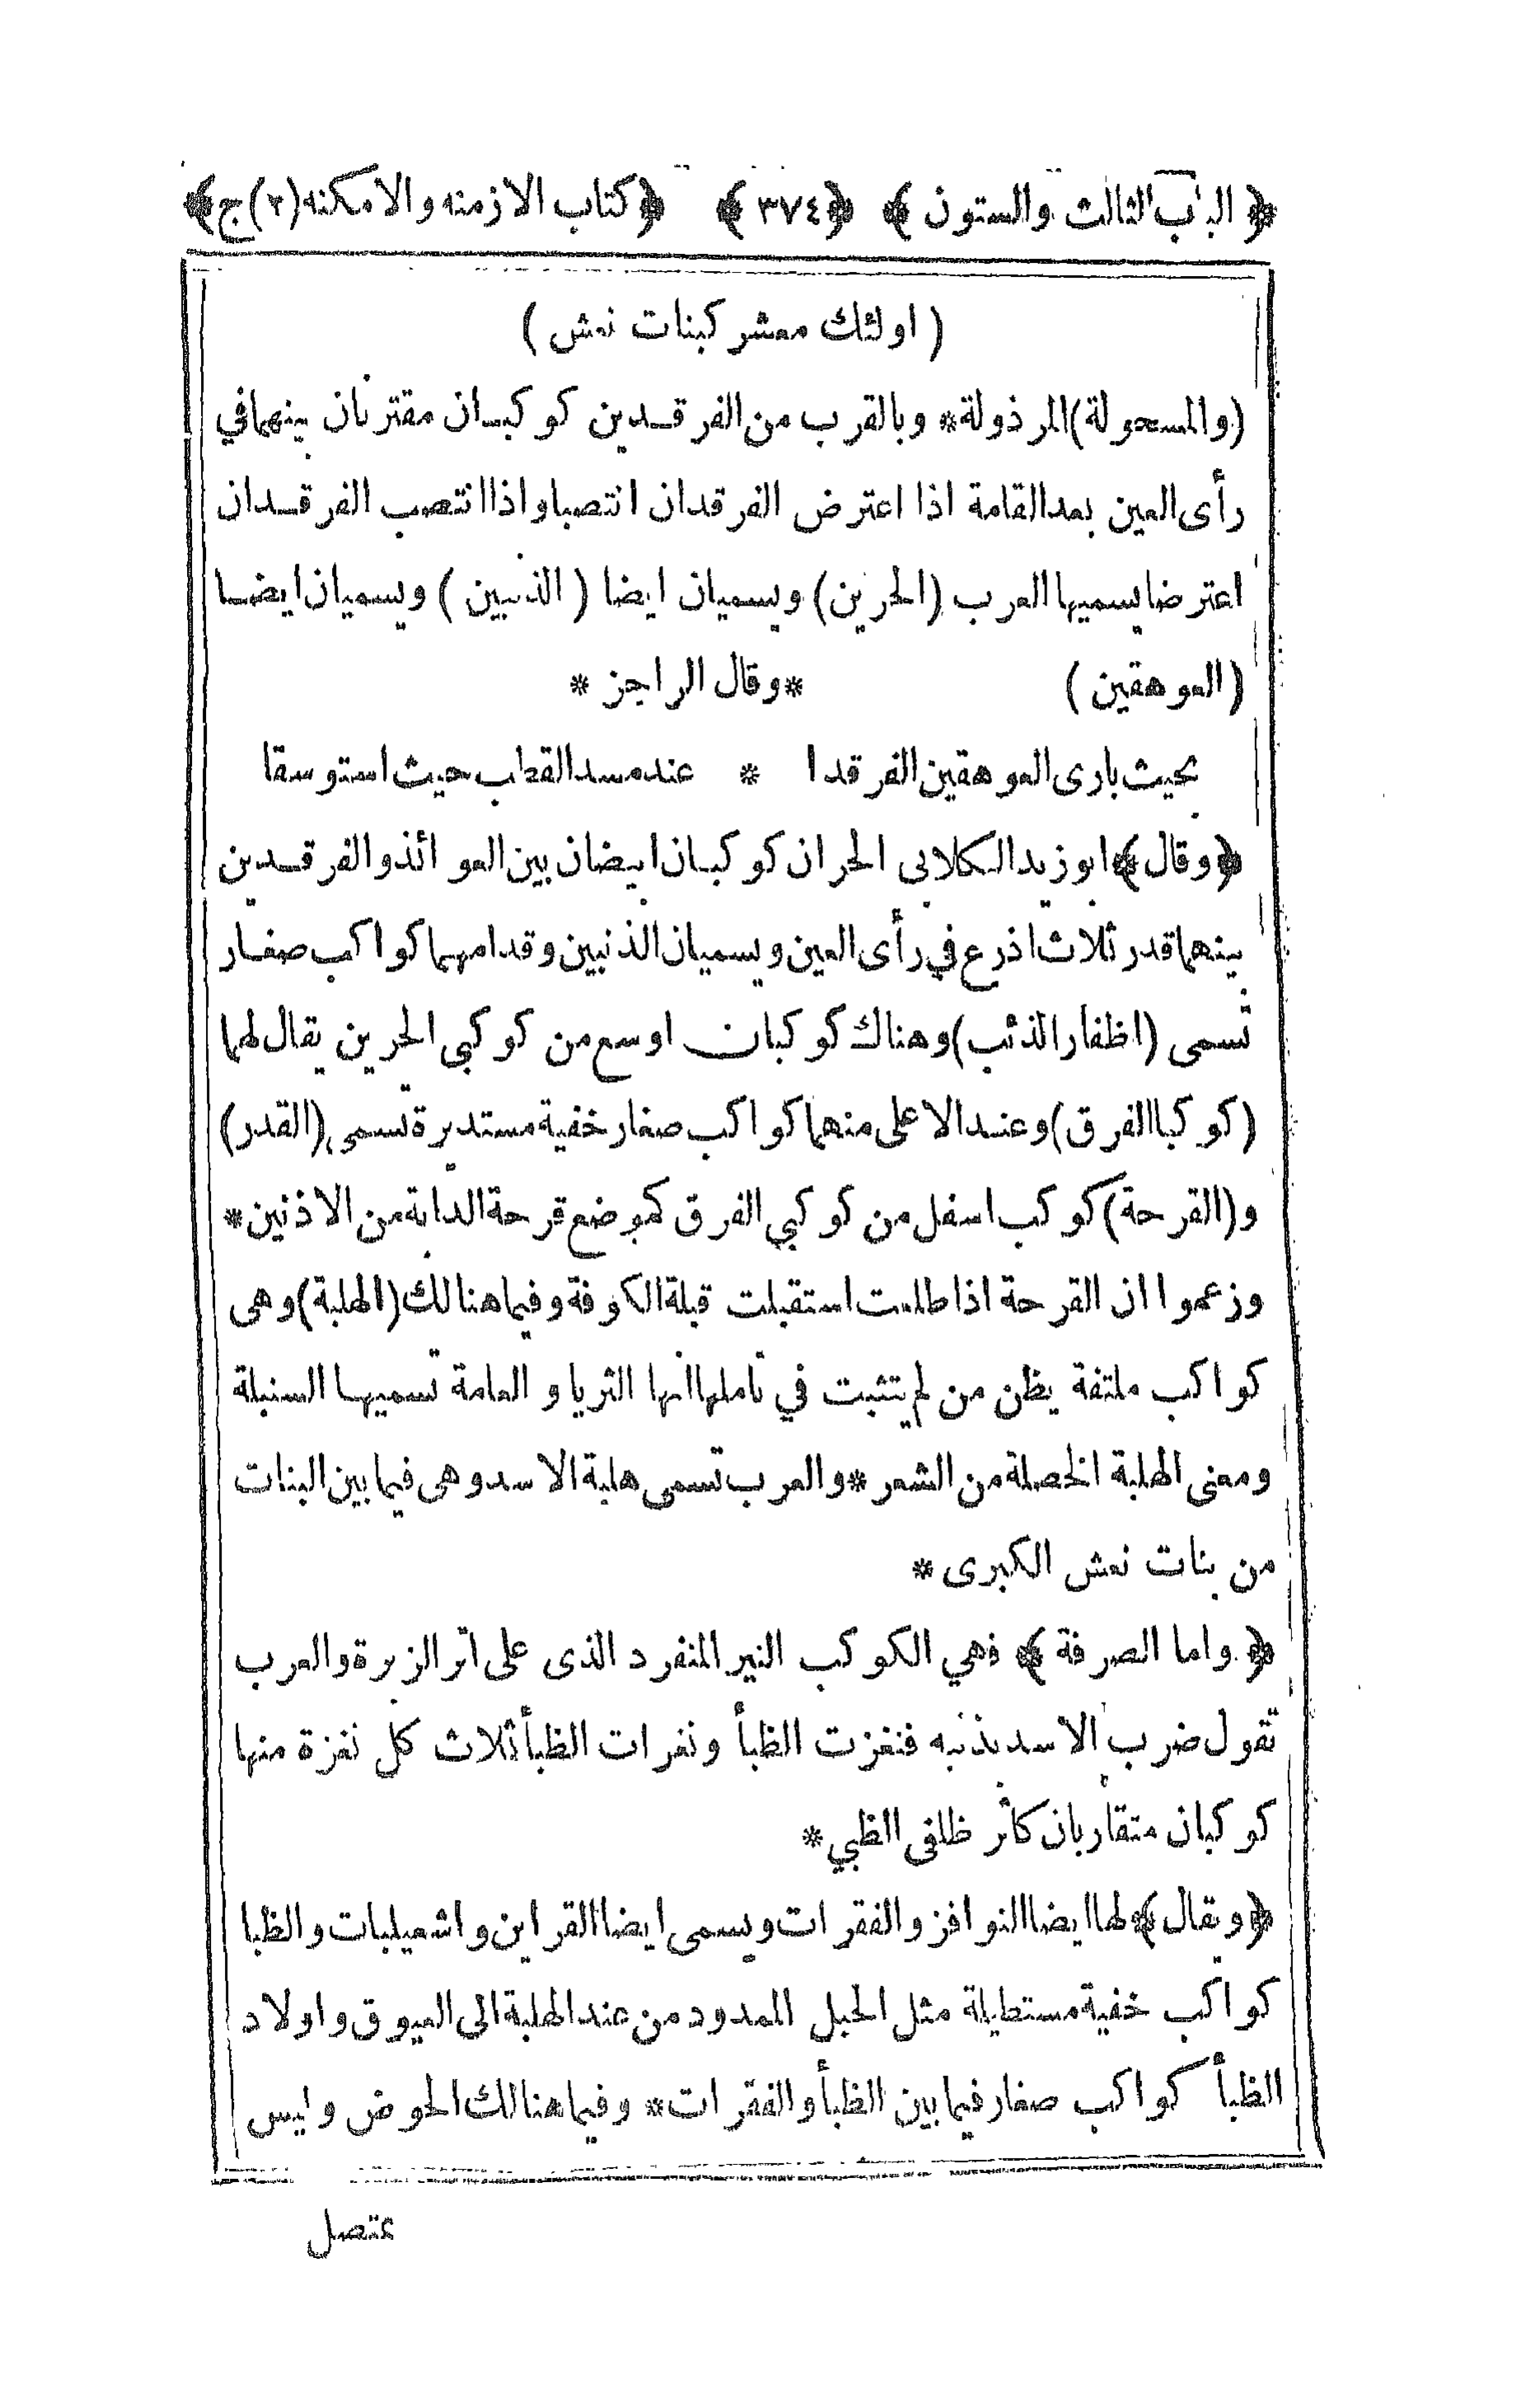 ﴿ الباب الثالث والستون ﴾ ﴿ ٣٧٤ ﴾ ﴿ كتاب الازمنه والامكنه (٢) ج ﴾
( اولئك معشر كبنات نعش )
(والمسحولة) المرذولة * وبالقرب من الفرقدين كوكبان مقترنان بينهما في
رأى العين بعد القامة اذا اعترض الفرقدان انتصبا واذا انتصب الفرقدان
اعترضا يسميها العرب (الحرين) ويسميان ايضا ( الذئبين ) ويسميان ايضا
( العوهقين ) * وقال الراجز *
بحيث بارى العوهقين الفرقدا * عند مسد القطب حيث استوسقا
﴿ وقال ﴾ ابو زيد الكلابى الحران كوكبان ابيضان بين العوائذ والفرقدين
بينهما قدر ثلاث اذرع في رأى العين ويسميان الذئبين وقدامهما كواكب صغار
تسمى (اظفار الذئب) وهناك كوكبان اوسع من كوكبي الحرين يقال لهما
(كوكبا الفرق) وعند الاعلى منهما كواكب صغار خفية مستديرة تسمى (القدر)
و(القرحة) كوكب اسفل من كوكبي الفرق كموضع قرحة الدابة من الاذنين *
وزعموا ان القرحة اذا طلعت استقبلت قبلة الكوفة وفيما هنالك (الهلبة) وهى
كواكب ملتفة يظن من لم يتثبت في تاملها انها الثريا و العامة تسميها السنبلة
ومعنى الهلبة الخصلة من الشعر * والعرب تسمى هلبة الاسد وهى فيما بين البنات
من بنات نعش الكبرى *
﴿ واما الصرفة ﴾ فهي الكوكب النير المنفرد الذى على اثر الزبرة والعرب
تقول ضرب الاسد بذنبه فنفزت الظبأ ونفرات الظبأ ثلاث كل نفزة منها
كوكبان متقاربان كاثر ظلفى الظبي *
﴿ ويقال ﴾ لها ايضا النوافز والفقرات ويسمى ايضا القراين واشعيلبات والظبا
كواكب خفية مستطيلة مثل الحبل الممدود من عند الهلبة الى العيوق واولاد
الظبأ كواكب صغار فيما بين الظبأ والفقرات * وفيما هنالك الحوض وليس
بمتصل